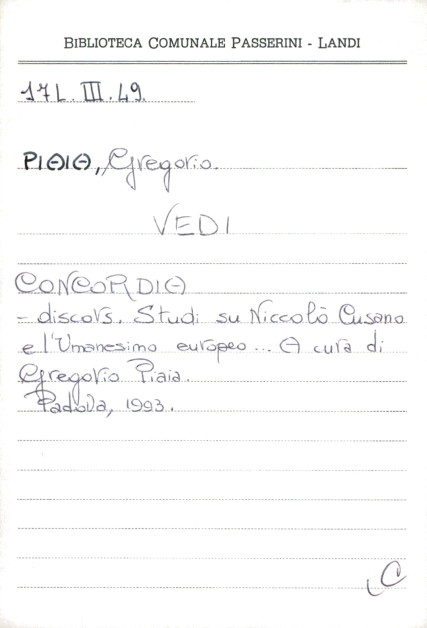 BIBLIOTECA COMUNALE PASSERINI - LANDI
17L.III.49.
PIAIA, Gregorio.
VEDI
CONCORDIA
- discors. Studi su Niccolò Cusano
e l'Umanesimo europeo... A cura di
Gregorio Piaia.
Padova, 1993.
C